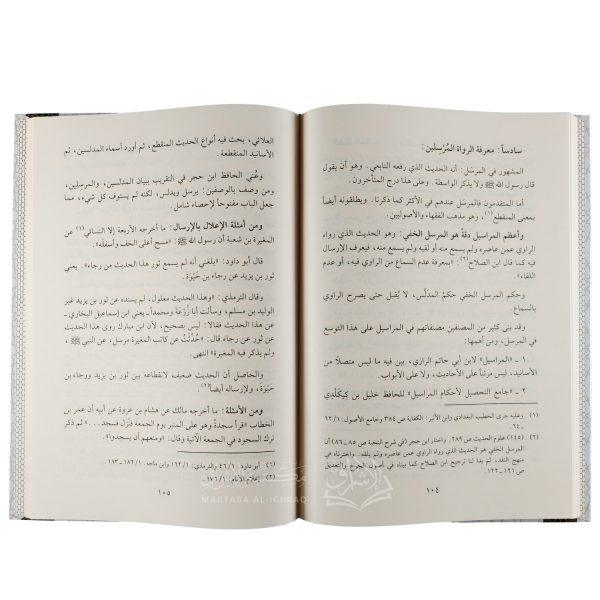 سادساً: معرفة الرواة المُرْسِلين:
المشهور في المرسَل: أنه الحديث الذي رفعه التابعي. وهو أن يقول
قال رسول الله ﷺ ولا يذكر الواسطة. وعلى هذا درج المتأخرون.
أما المتقدمون فالمرسَل عندهم في الأكثر كما ذكرنا. ويطلقونه أيضاً
بمعنى المنقطع(١)، وهو مذهب الفقهاء والأصوليين.
وأعظم المراسيل دقةً هو المرسل الخفي: وهو الحديث الذي رواه
الراوي عمن عاصره ولم يسمع منه أو لقيه ولم يسمع منه، فيعرف الإرسال
فيه كما قال ابن الصلاح(٢): «بمعرفة عدم السماع من الراوي فيه، أو عدم
اللقاء».
وحكم المرسل الخفي حكمُ المدلَّس، لا يُقبل حتى يصرح الراوي
بالسماع.
وقد بنى كثير من المصنفين مصنفاتهم في المراسيل على هذا التوسع
في المرسل، ومن أهمها:
١ - «المراسيل» لابن أبي حاتم الرازي، بين فيه ما ليس متصلاً من
الأسانيد، ليس مرتباً على الأحاديث، ولا على الأبواب.
٢ - «جامع التحصيل لأحكام المراسيل» للحافظ خليل بن كيكَلْدي
(١) وعليه جرى الخطيب البغدادي وابن الأثير: الكفاية ص ٣٨٤ وجامع الأصول: ١/٦٢
- ٦٤.
(٢) (١٤٥) علوم الحديث ص ٢٨٩. واختار ابن حجر في شرح النخبة ص ٨٥ - ٨٦) أن
المرسل الخفي هو الحديث الذي رواه الراوي عمن عاصره ولم يلقه. واخترناه في
منهج النقد، ثم بدا لنا ترجيح ابن الصلاح كما بيناه في أصول الجرح والتعديل
ص ١٢١ - ١٢٢.
١٠٤
العلائي، بحث فيه أنواع الحديث المنقطع، ثم أورد أسماء المدلسين، ثم
الأسانيد المنقطعة.
وعُني الحافظ ابن حجر في التقريب ببيان المدلسين، والمرسِلين،
ومن وصف بالوصفين: يرسل ويدلس، لكنه لم يستوف كل شيء، مما
جعل الباب مفتوحاً لإحصاء شامل.
ومن أمثلة الإعلال بالإرسال: ما أخرجه الأربعة إلا النسائي(١) عن
المغيرة بن شعبة أن رسول الله ﷺ: «مسح أعلى الخف وأسفله».
قال أبو داود: «بلغني أنه لم يسمع ثور هذا الحديث من رجاء». يعني
ثور بن يزيد عن رجاء بن حَيْوَة.
وقال الترمذي: «وهذا الحديث معلول، لم يسنده عن ثور بن يزيد غير
الوليد بن مسلم، وسألت أبا زُرْعَةَ ومحمداً - يعني ابن إسماعيل البخاري -
عن هذا الحديث فقالا: ليس بصحيح، لأن ابن مبارك روى هذا عن
ثور عن رجاء قال: «حُدِّثْتُ عن كاتب المغيرة مرسل، عن النبي ﷺ،
ولم يذكر فيه المغيرة» انتهى.
والحاصل أن الحديث ضعيف لانقطاعه بين ثور بن يزيد ورجاء بن
حَيْوَة، ولإرساله أيضاً(٢).
ومن الأمثلة: ما أخرجه مالك عن هشام بن عروة عن أبيه أن عمر بن
الخطاب «قرأ سجدة وهو على المنبر يوم الجمعة فنزل فسجد...» ثم ذكر
ترك السجود في الجمعة الآتية وقال: «ومنعهم أن يسجدوا».
(١) أبو داود: ١/٤٦ والترمذي: ١/١٦٢ وابن ماجه: ١/١٨٢ - ١٨٣.
(٢) إعلام الأنام: ١/١٧٦.
١٠٥
MAKTABA AL-ICHRAQ